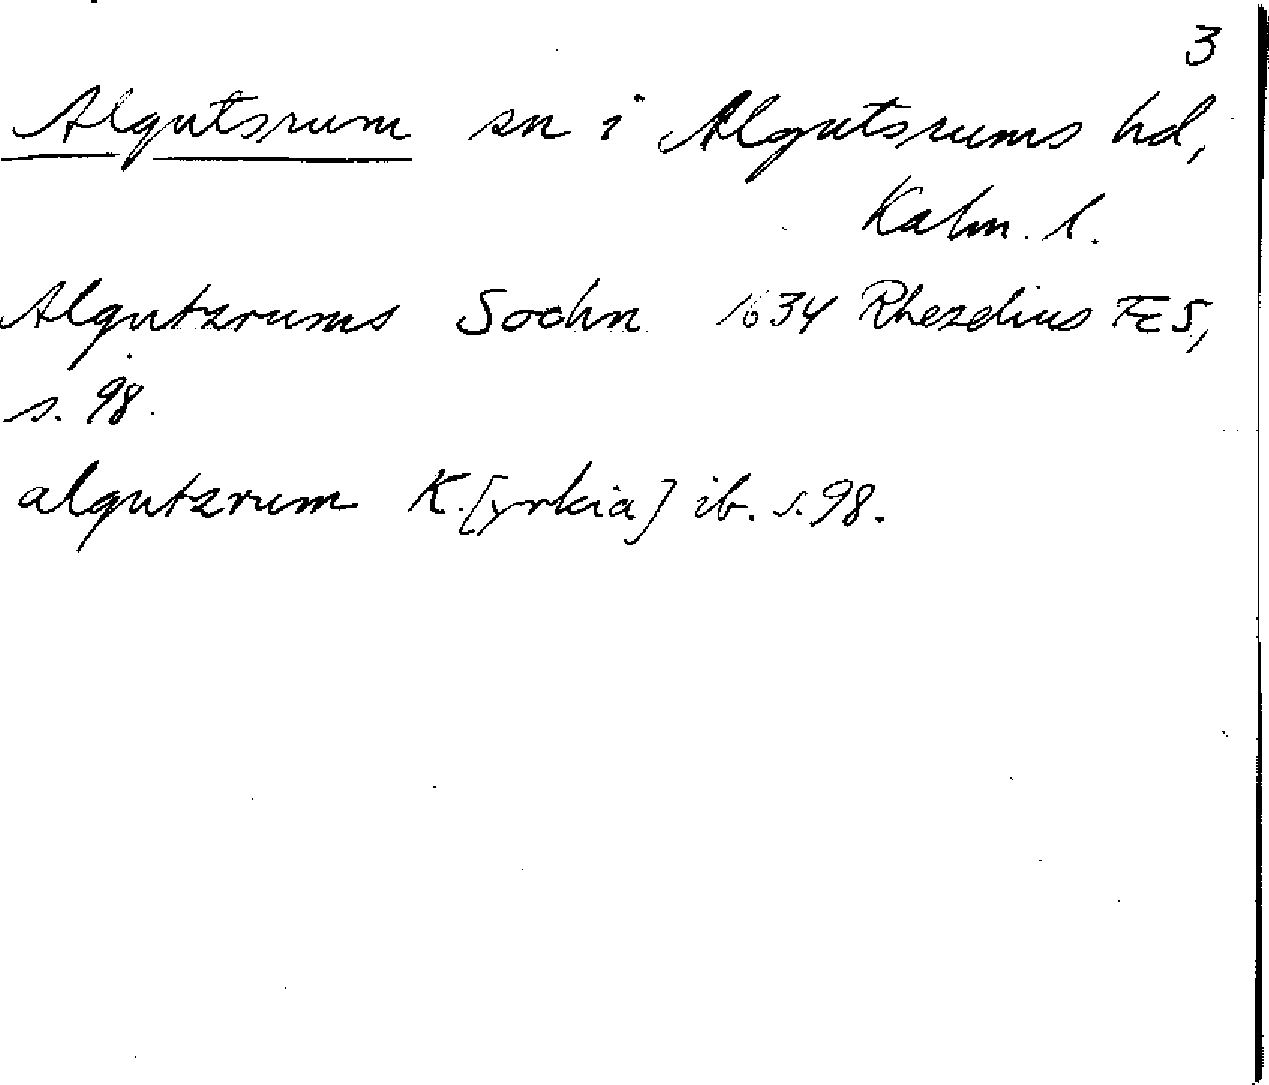 3
Algutsrum sn i Algutsrums hd,
Kalm. l.
Algutzrums Sochn 1634 Rhezelius FES,
s. 98.
algutzrum K.[yrkia] ib. s. 98.